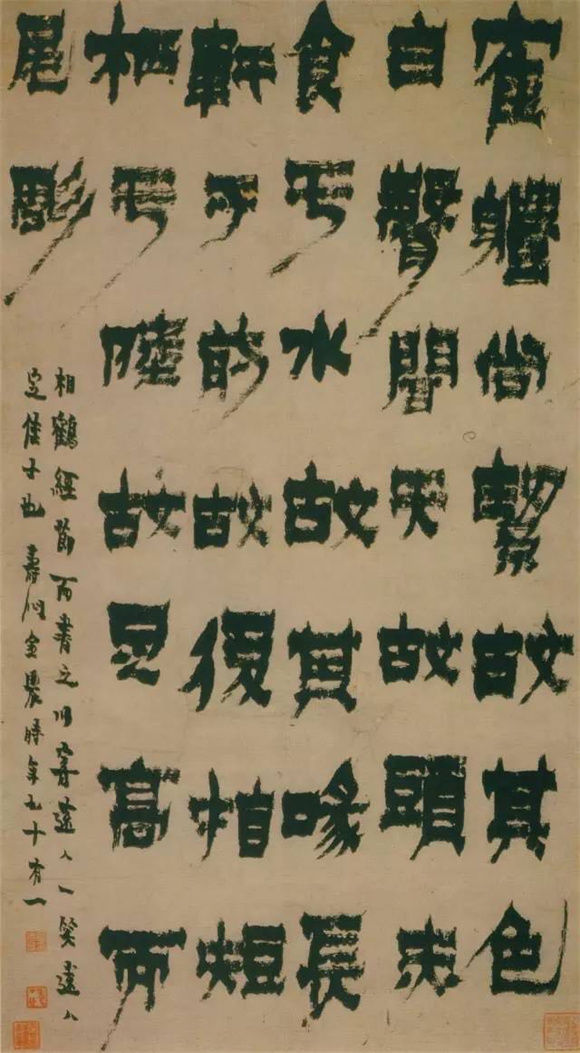 隺軆尚絜故其色
白聲聞天故頭朱
食亏水故其喙長
軒于前故後指短
栖亏陸故足高而
尾彫
相鶴經節而書之 一笑
定佳士也壽門金農時年七十有一